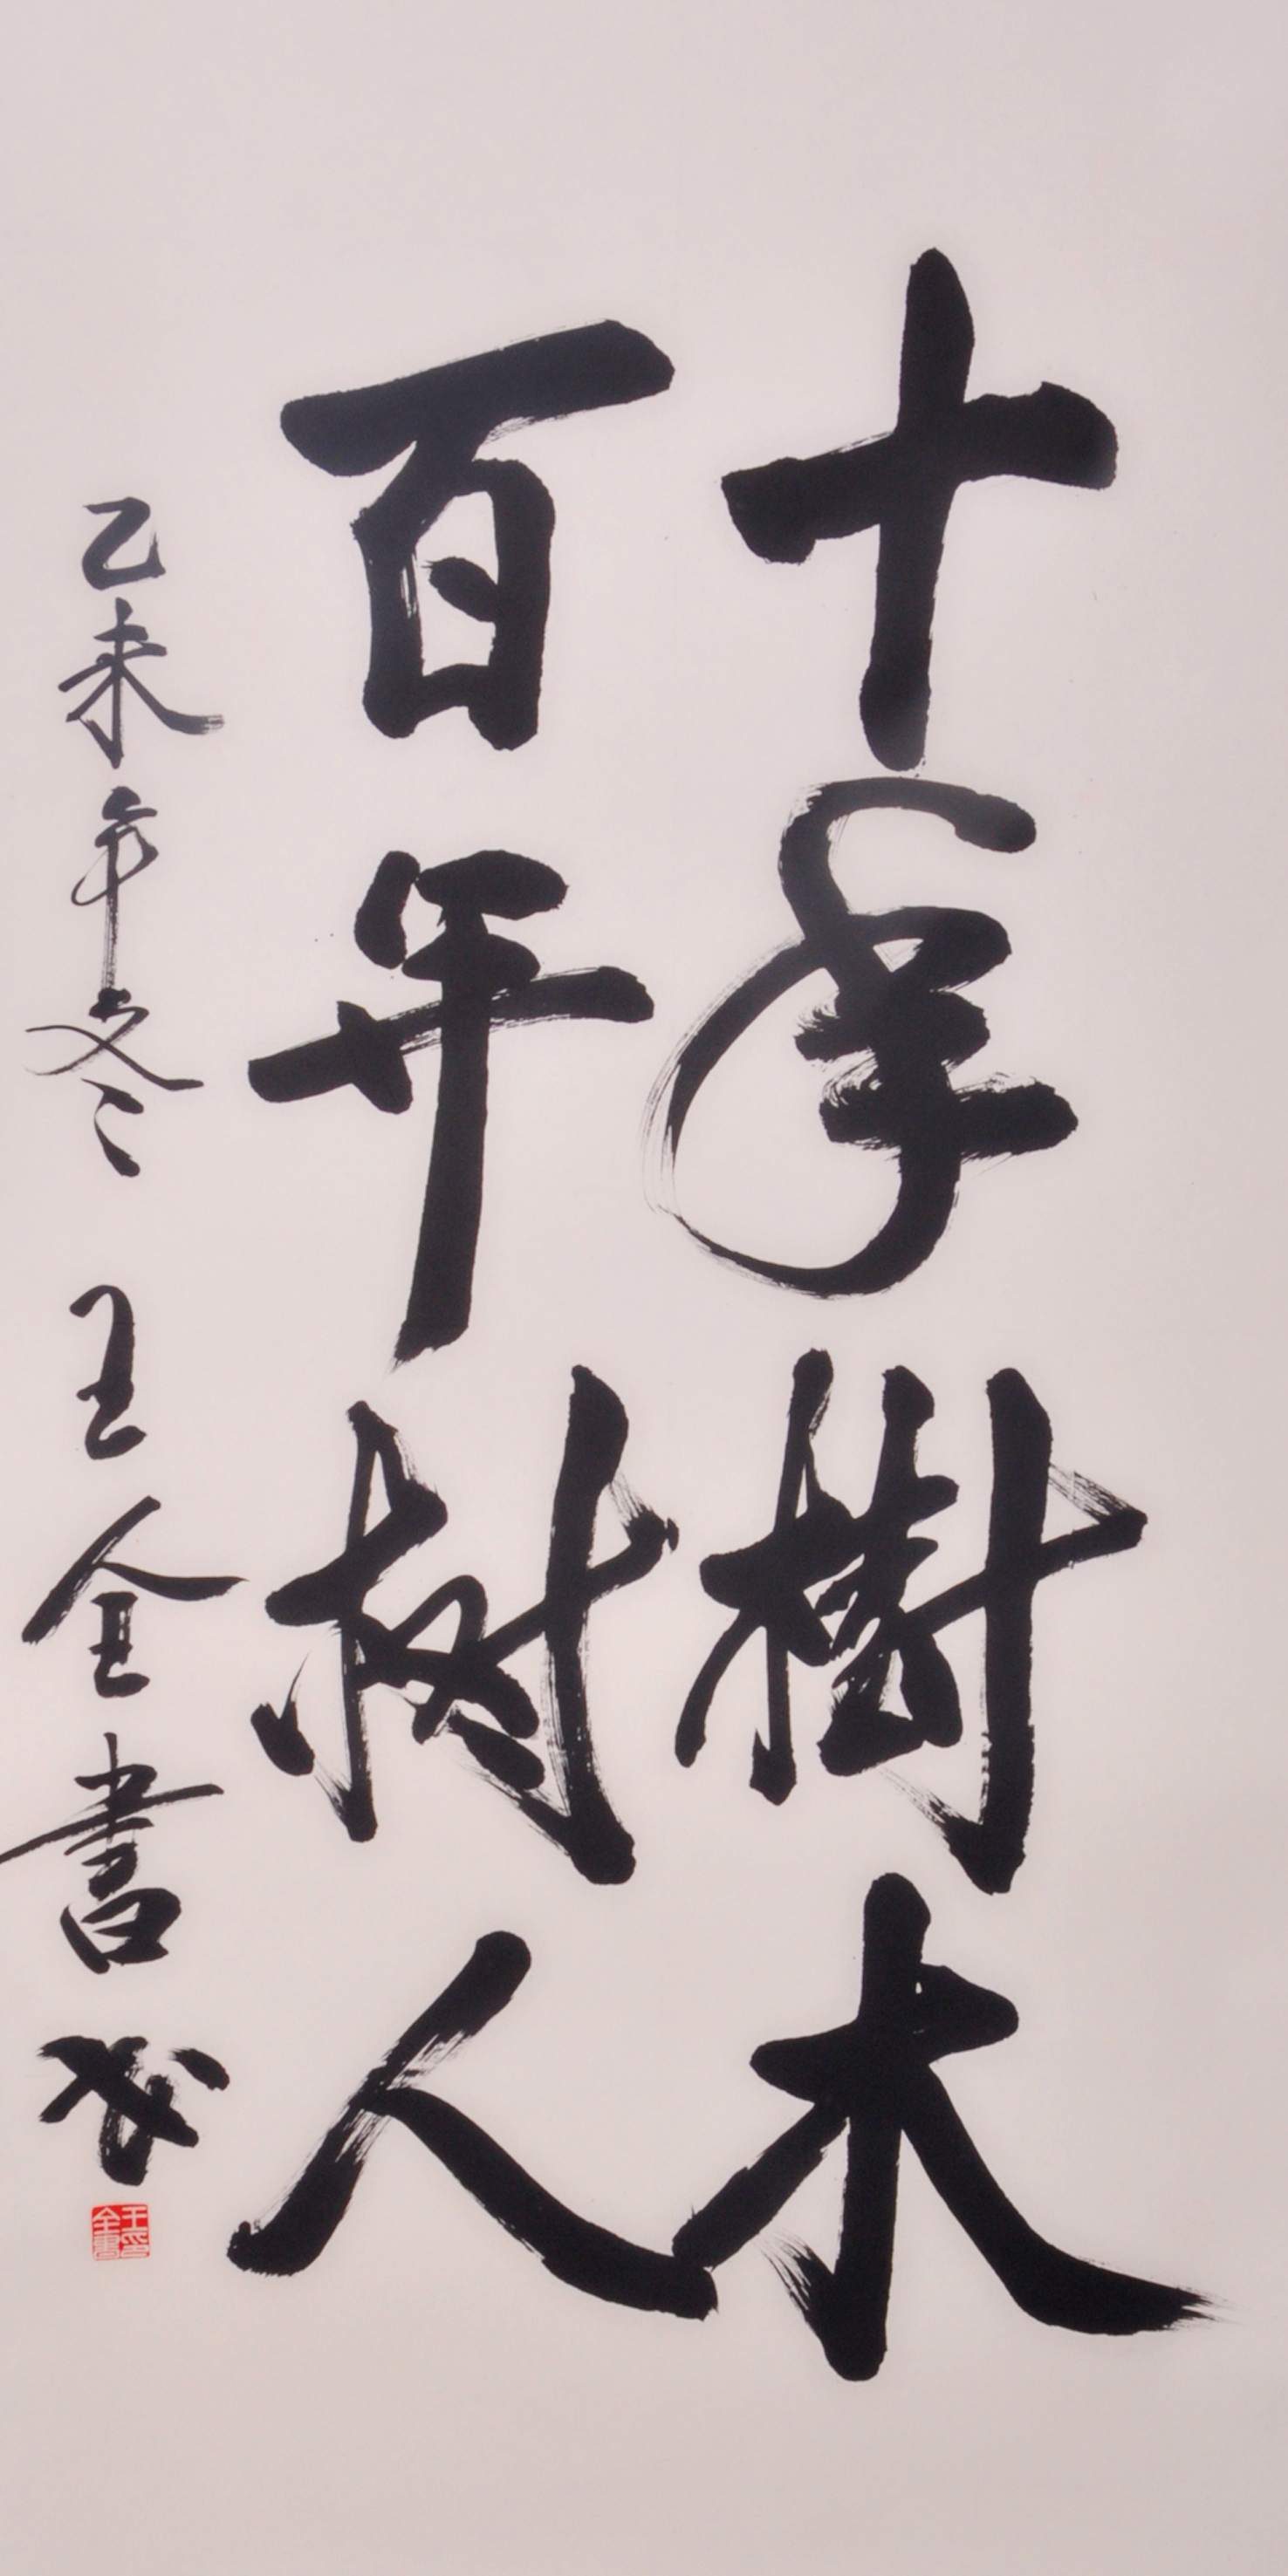 十年樹木
百年树人
乙未年冬 王全書
王印全書